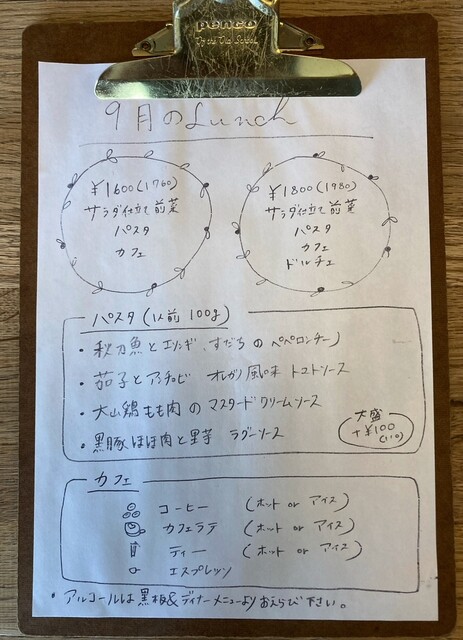 penco
9月のLunch
¥1600(1760)
サラダ仕立て前菜
パスタ
カフェ
¥1800(1980)
サラダ仕立て前菜
パスタ
カフェ
ドルチェ
パスタ(1人前 100g)
・秋刀魚とエリンギ、すだちのペペロンチーノ
・茄子とアンチョビ オレガノ風味 トマトソース
・大山鶏もも肉のマスタードクリームソース
・黒豚ほほ肉と里芋 ラグーソース
大盛
+¥100
(110)
カフェ
コーヒー (ホット or アイス)
カフェラテ (ホット or アイス)
ティー (ホット or アイス)
エスプレッソ
・アルコールは黒板&ディナーメニューよりおえらび下さい。